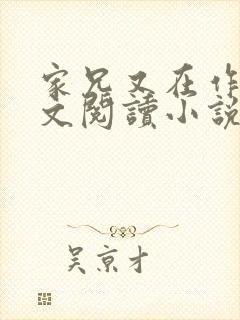 家兄又在作
文閱讀小說
吴京才